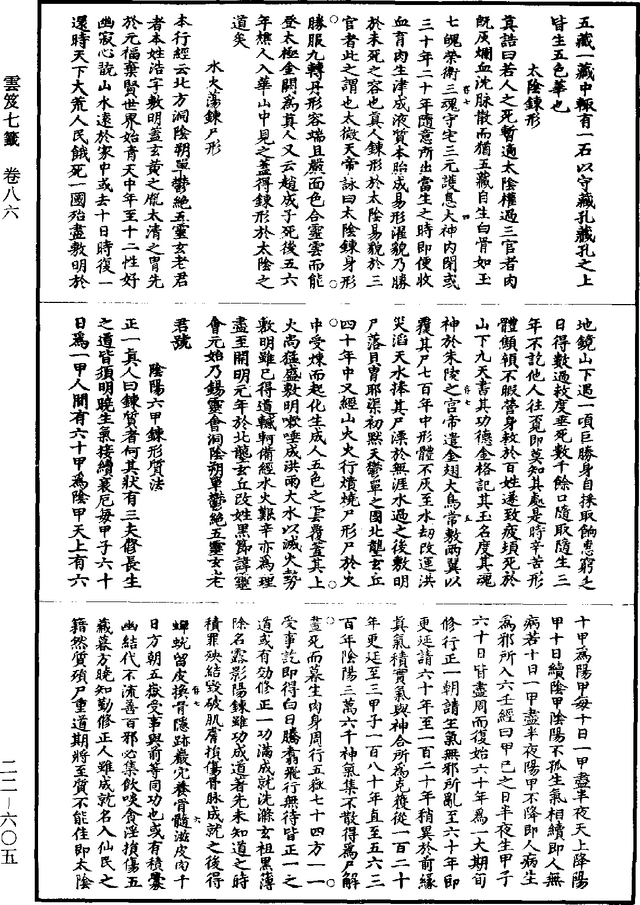 雲笈七籤 卷八六
二二—六〇五
五藏一藏中輒有一石以守藏孔藏孔之上
皆生五色華也
太陰鍊形
真誥曰若人之死暫適太陰權過三官者肉
既灰爛血沈脉散而猶五藏自生白骨如玉
七魄榮衛三魂守宅三元護息太神內閉或
三十年二十年隨意所出當生之時即便收
血育肉生津成液質本胎成易形濯貌乃勝
於未死之容也真人鍊形於太陰易貌於三
官者此之謂也太微天帝詠曰太陰鍊身形
勝服九轉丹形容端且嚴面色合靈雲而能
登太極金闕為真人又云趙成子死後五六
年樵人入華山中見之蓋得鍊形於太陰之
道矣
水火蕩鍊尸形
本行經云北方洞陰朔單鬱絕五靈玄老君
者本姓浩字敷明蓋玄黃之胤太清之胄先
於元福棄賢世界始青天中年至十二性好
幽寂心說山水遠於家中或去十日時復一
還時天下大荒人民餓死一國殆盡敷明於
地鏡山下遇一項巨勝身自採取餉惠窮乏
日得數過救度垂死數千餘口隨取隨生三
年不訖他人往覓即莫知其處是時辛苦形
體顦頓不暇營身救於百姓遂致疲頓死於
山下九天書其功德金格記其玉名度其魂
神於朱陵之宮帝遣金翅大鳥常敷兩翼以
覆其尸七百年中形體不灰至水劫改運洪
災滔天水捧其尸漂於無涯水過之後敷明
尸落貝胄耶渠初默天鬱單之國北壟玄丘
四十年中又經山火火行燌燒尸形尸於火
中受煉而起化生成人五色之雲覆蓋其上
火尚猛盛敷明嗽唾成洪雨大水以滅火勢
敷明雖已得道轗軻備經水火艱辛亦為理
盡至開明元年於北壟玄丘改姓黑節諱靈
會元始乃錫靈會洞陰朔單鬱絕五靈玄老
君號
陰陽六甲鍊形質法
正一真人曰鍊質者何其狀有三夫修長生
之道皆須明曉生氣接續衰厄每甲子六十
日為一甲人間有六十甲為陰甲天上有六
十甲為陽甲每十日一甲盡半夜天上降陽
甲十日續陰甲陰陽不孤生氣相續即人無
病若十日一甲盡半夜陽甲不降即人病生
為邪所入六壬經曰甲己之日半夜生甲子
六十日皆盡周而復始六十年為一大期旬
修行正一朝請生氣無邪所亂至六十年即
更延請六十年至一百二十年稍異於前緣
真氣積實氣與神合所為克獲從一百二十
年更延至三甲子一百八十年直至五六三
百年陰陽三萬六千神氣集不散得為尸解
晝死而暮生肉身周行五嶽七十四方一一
受事訖即得白日騰翥飛行無待皆正一之
道或有効修正一功滿成就洗滌玄祖黑薄
除名露影陽鍊雖功成道者先未知道之時
積罪殃結毀破肌膚損傷骨脉成就之後得
蟬蛻留皮換骨隱跡巖穴養骨髓滋皮肉千
日方朝五嶽受事與前等同功也或有積釁
幽結代不流善百邪必集飲啖貪淫損傷五
藏暮方曉知勤修正人雖成就名入仙民之
籍然質殞尸重道期將至質不能住即太陰